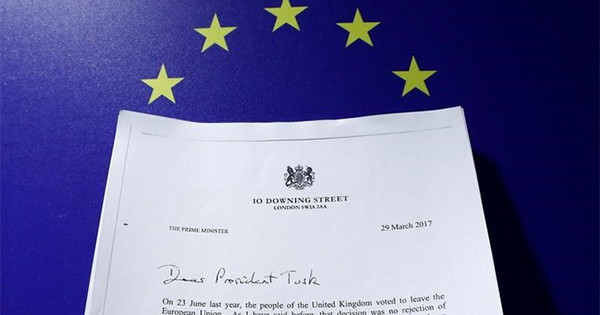 10 DOWNING STREET
LONDON SW1A 2AA
THE PRIME MINISTER
29 March 2017
Dear President Tusk
On 23 June last year, the people of the United Kingdom voted to leave the
European Union. As I have said before, that decision was no rejection of